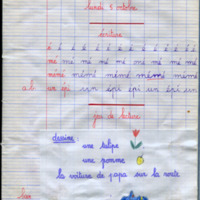 lundi 8 octobre
écriture
é é é é é é é é é é
né né né né né né né
mémé mémé mémé mémé mémé
un épi un épi épi un épi un
jeu de lecture
dessine une tulipe
une pomme
la voiture de papa sur la route